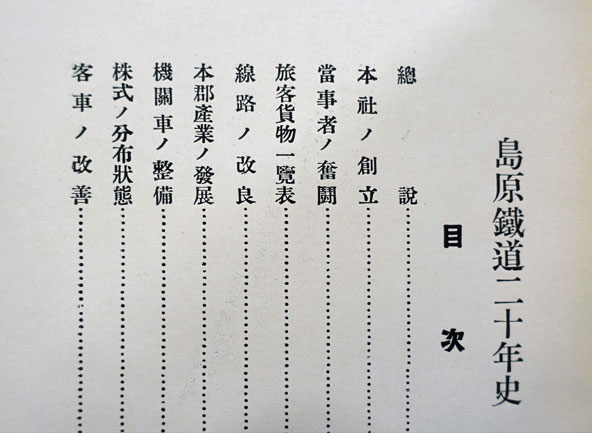 島原鐵道二十年史
目次
總說
本社ノ創立
當事者ノ奮鬪
旅客貨物一覽表
線路ノ改良
本郡產業ノ發展
機關車ノ整備
株式ノ分布狀態
客車ノ改善